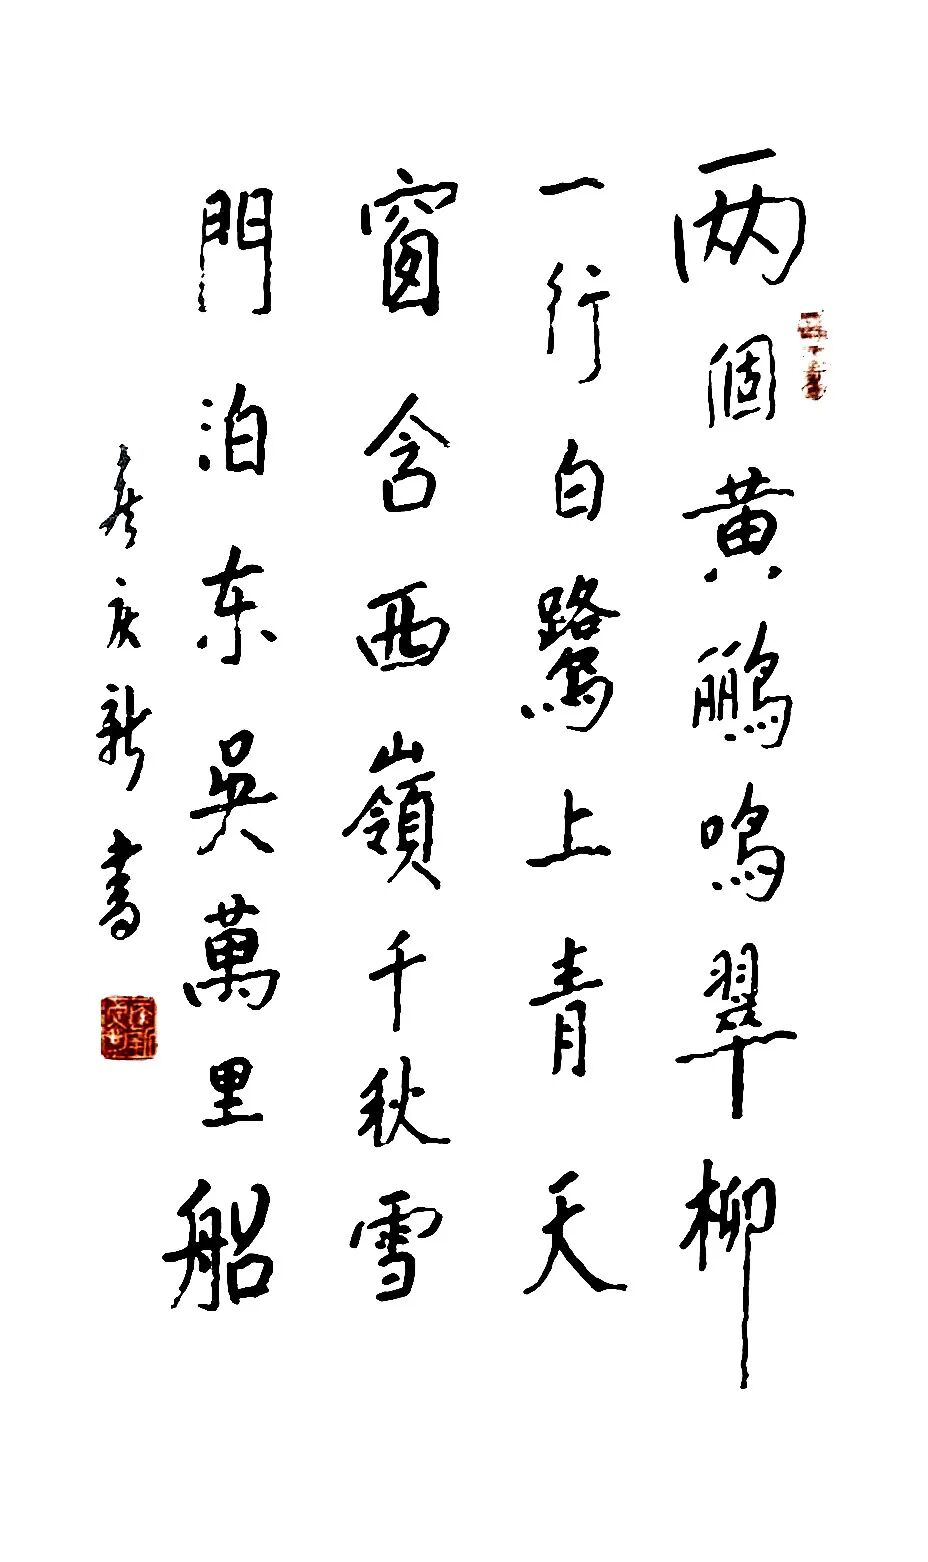 两個黄鹂鳴翠柳
一行白鷺上青天
窗含西嶺千秋雪
門泊东吴萬里船
庆新書